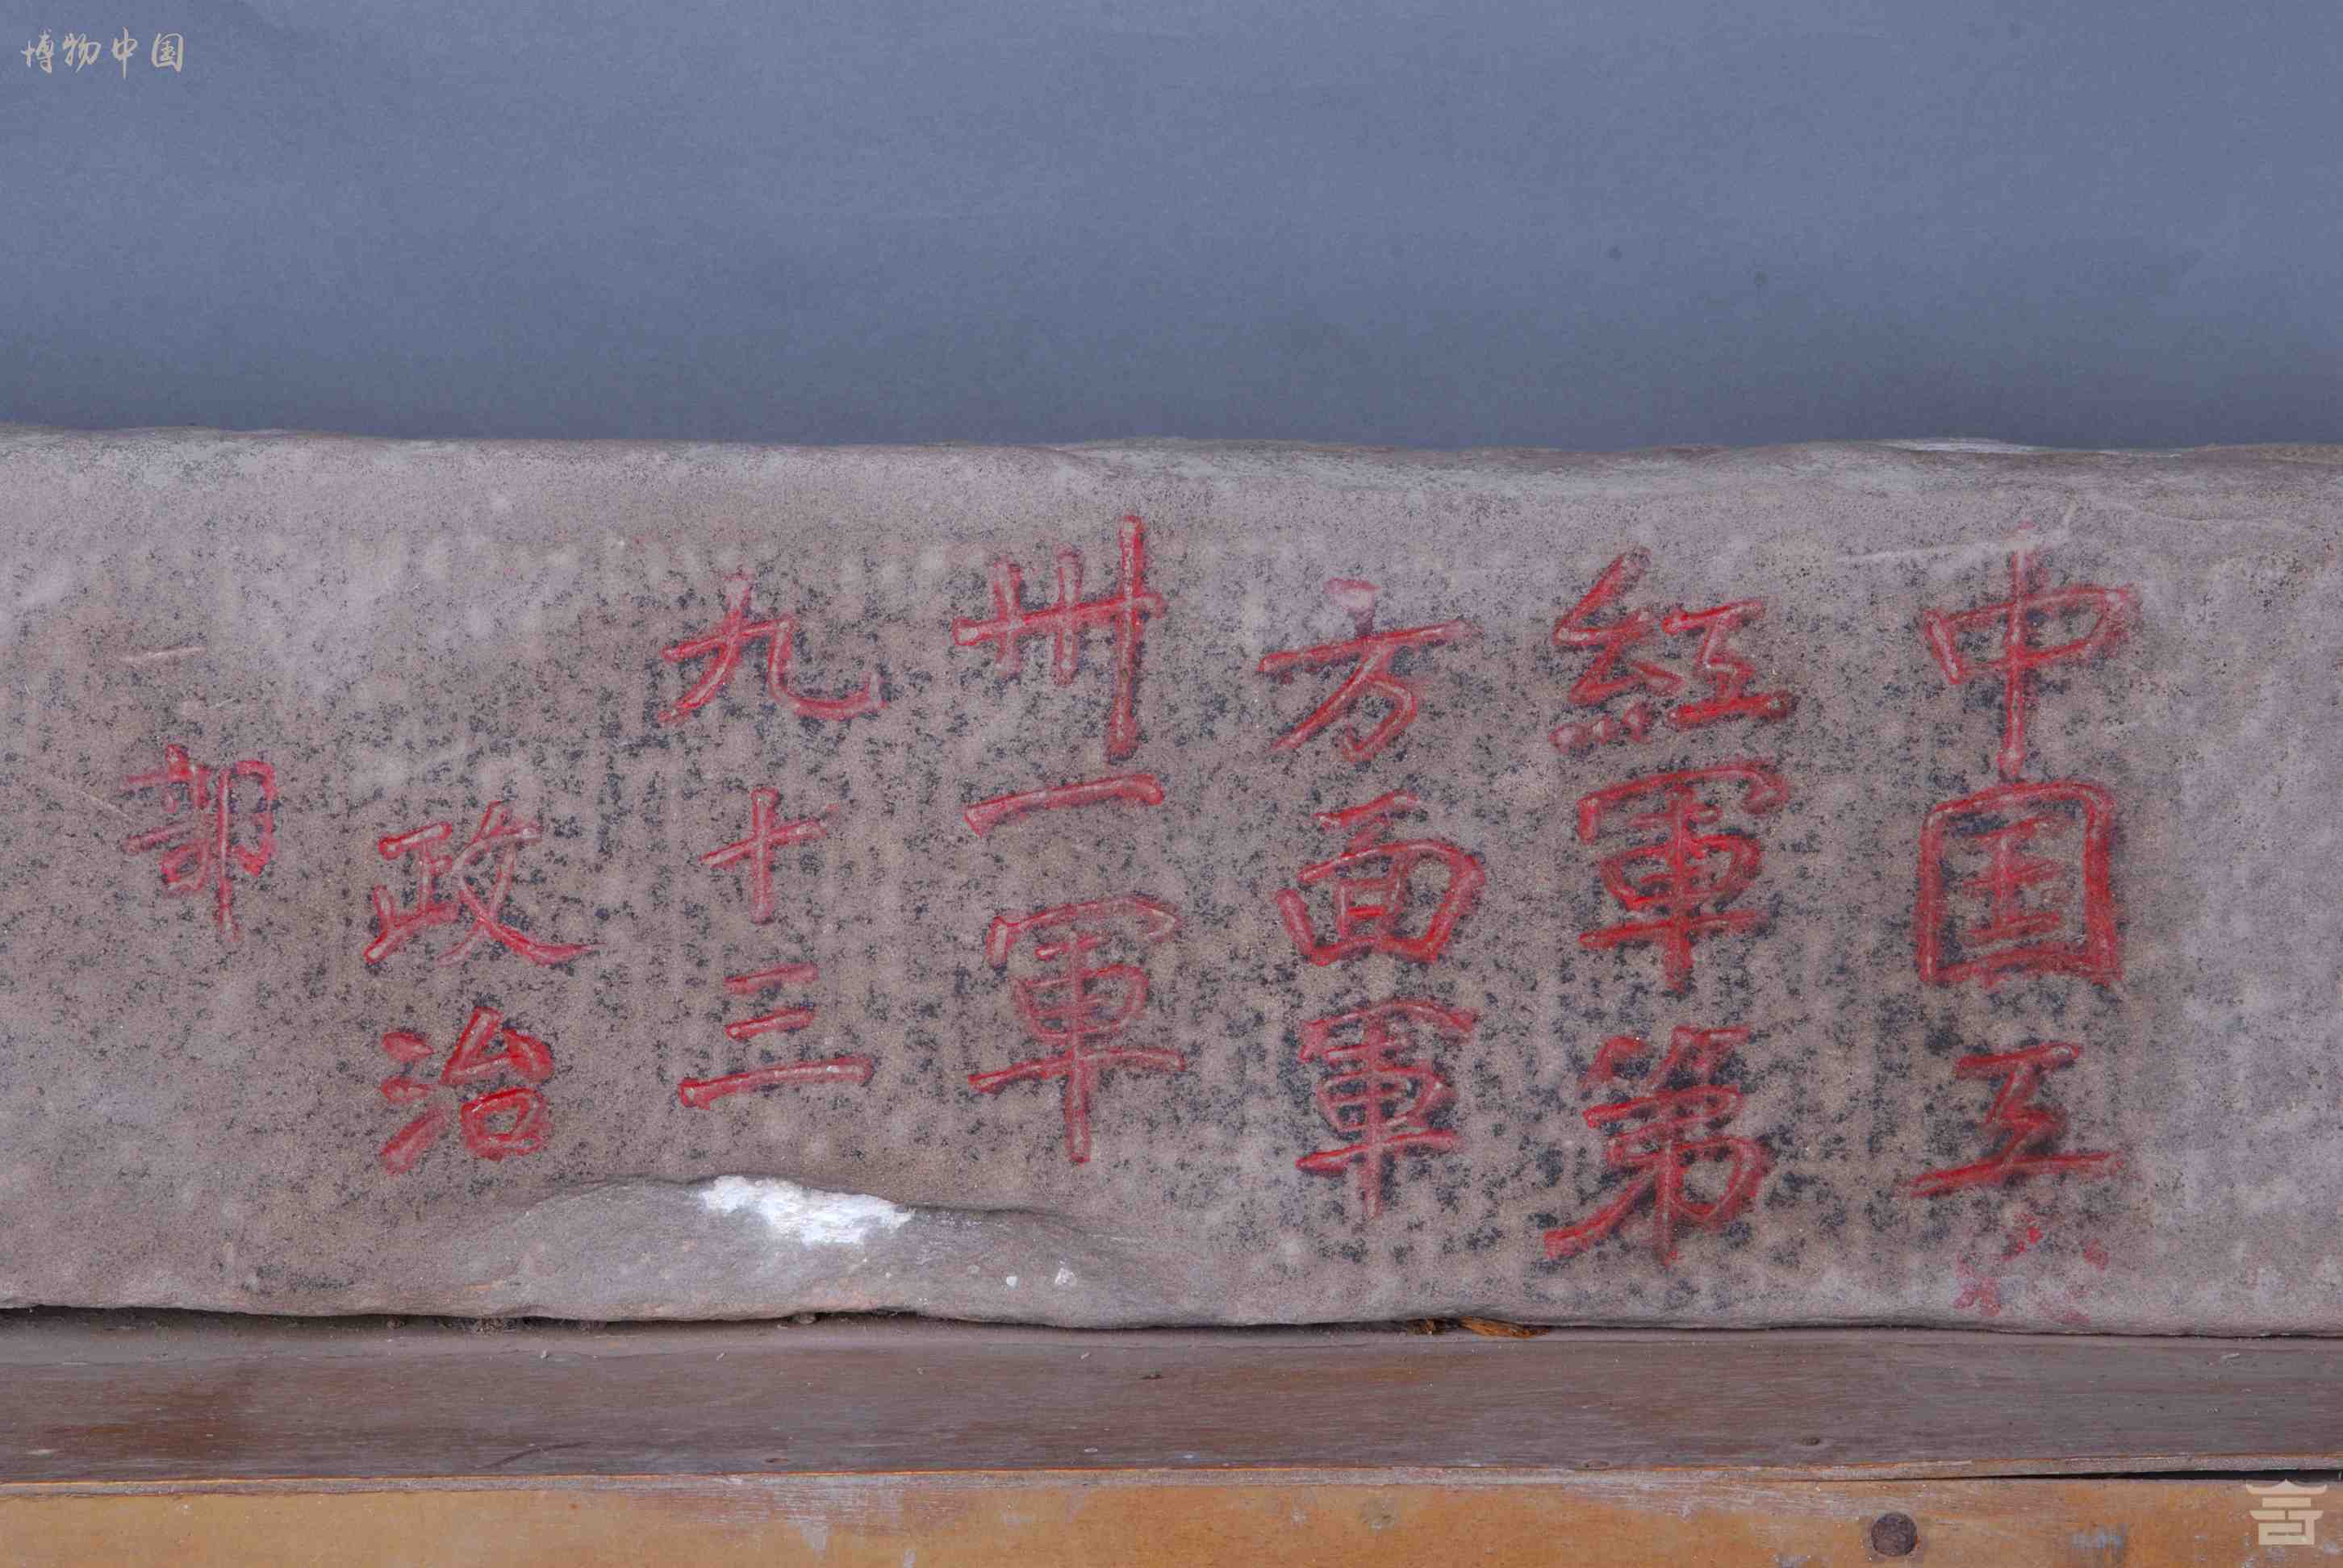 博物中国
中国工
紅軍第
方面軍
卅一軍
九十三
政治
部